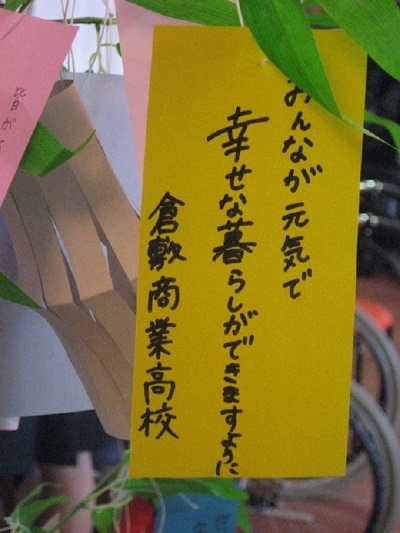 みんなが元気で
幸せな暮らしができますように
倉敷商業高校
皆が